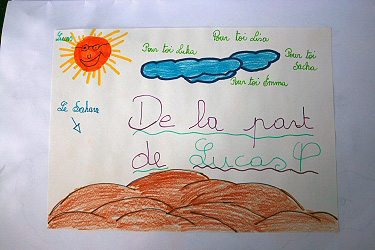 Lucas
Pour toi Lisa
Pour toi Luka
Pour toi
Sacha
Pour toi Emma
Le Sahara
De la part
de Lucas P